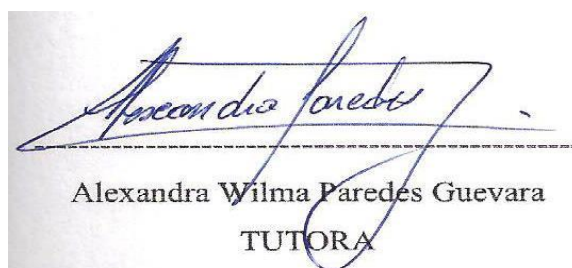 Alexandra Paredes
Alexandra Wilma Paredes Guevara
TUTORA